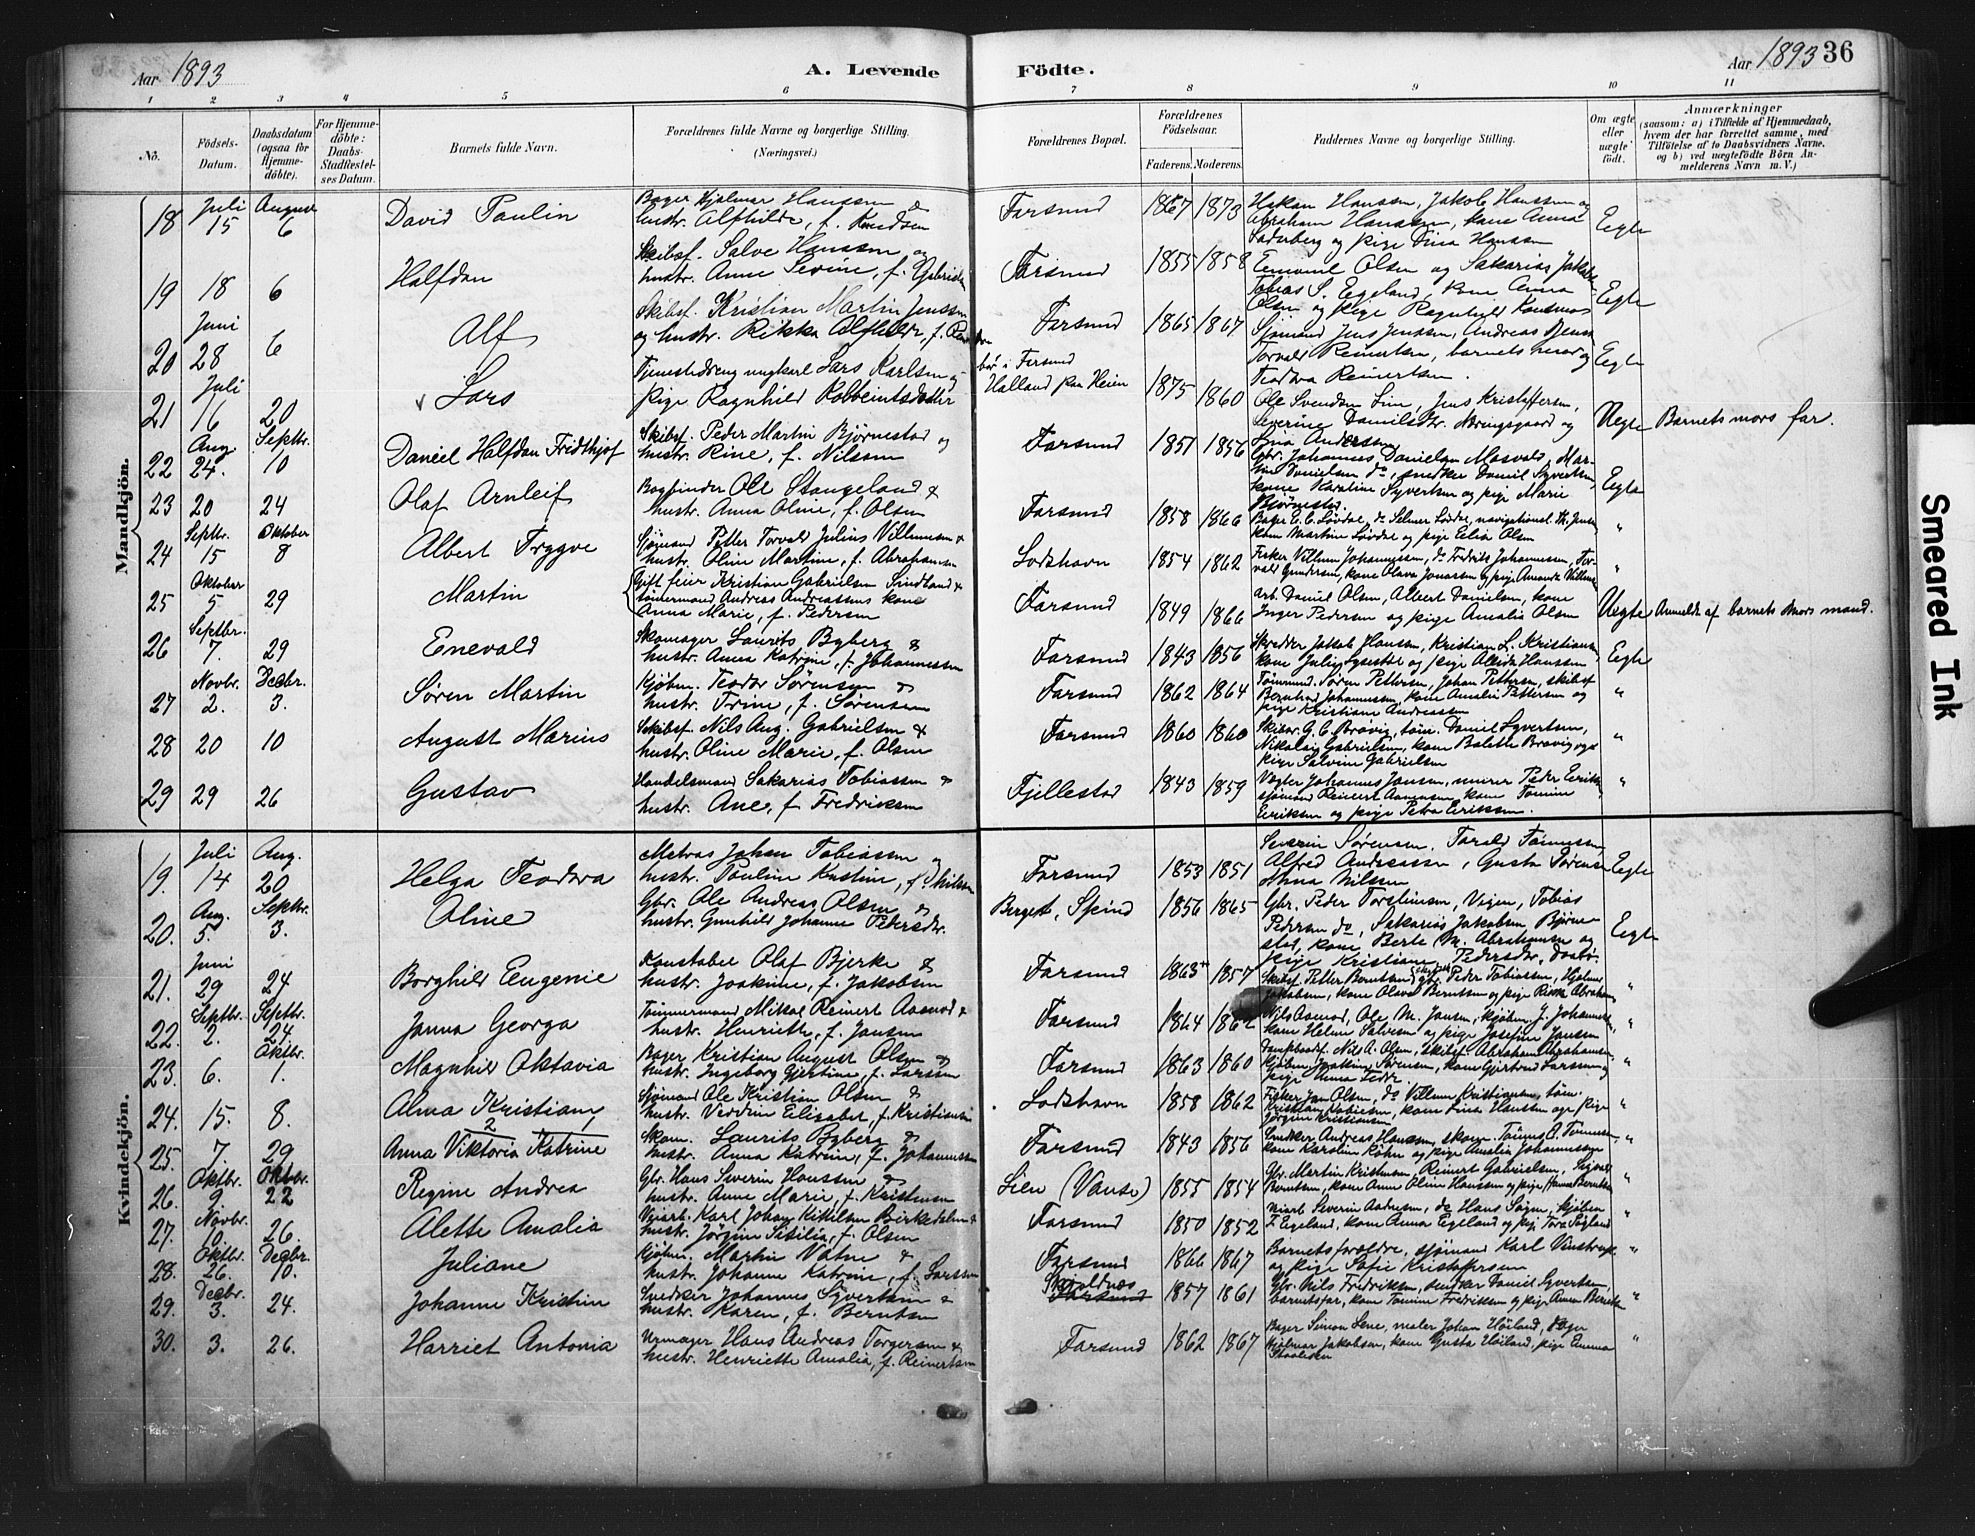 Aar 1893
A. Levende
Födte.
Aar 1893
36
1 2 3 4 5 6 7 8 9 10 11
No.
Födsels-Datum.
Daabsdatum (ogsaa for Hjemmedöbte).
For Hjemmedöbte: Daabs-Stadfæstelses Datum.
Barnets fulde Navn.
Forældrenes fulde Navne og borgerlige Stilling. (Næringsvei.)
Forældrenes Bopæl.
Forældrenes Födselsaar.
Faderens. Moderens.
Faddernes Navne og borgerlige Stilling.
Om ægte eller uægte födt.
Anmærkninger
(saasom: a) i Tilfælde af Hjemmedaab, hvem der har forrettet samme, med Tilföielse af to Daabsvidners Navne, og b) ved uægtefödte Börn Anmelderens Navn m. V.)
Mandkjön.
18 Juli 15 August 6 David Paulin Bager Hjalmar Hanssen & hustr. Alfhilde, f. Knudsen Farsund 1867 1873 Hakan Hanssen, Jakob Hanssen og Abraham Hanssen, kone Anna Söderberg og pige Dina Hanssen Egte
19 18 6 Halfdan Skibsf. Salve Hanssen og hustr. Anne Sevine, f. Farsund 1855 1858 Olsen og Sakarias Tobias S. Egeland, kone Anna Olsen og pige Ragnhild Egte
20 Juni 28 6 Alf Skibsf. Kristian Martin Jenssen og hustr. Rikka f. Farsund 1865 1867 Sjømand Jens Jenssen, Andreas Torvald Reinertsen, barnets mor og Teodora Reinertsen. Egte
21 Juli 16 20 Lars Tjenestedreng ungkarl Lars Karlsen og pige Ragnhild bor i Farsund Halland paa Heien 1875 1860 Ole Svendsen Jens Kristoffersen, Severine og Andersen Uegte Barnets mors far.
22 Aug. 24. Septbr. 10 Daniel Halfdan Fridthjof Skibsf. Peder Martin Bjørnestad og hustr. Rine, f. Nilssen Farsund 1851 1856 Gbr. Johannes Danielsen Mosvold, Martin Danielsen do, snedker Daniel Syvertsen, kone Karoline Syvertsen og pige Marie Bjørnestad. Egte
23 20 24 Olaf Arnleif Bogbinder Ole Stangeland & hustr. Anna Oline, f. Olsen Farsund 1858 1866 Bager E. E. Løvdal, do Selmer Løvdal, kone Martine Løvdal og pige Elia Olsen "
24 Septbr. 15 Oktober 8 Albert Trygve Sjømand Petter Torvald Julius Villumsen & hustr. Oline Martine, f. Abrahamsen Loshavn 1854 1862 Fisker Villum Johannessen, do Fredrik Johannessen, Torvald Gundersen, kone Olava Jonassen og pige Amanda "
25 Oktober 5 29 Martin Gift feier Kristian Gabrielsen Sindland & tømmermand Andreas Andreassens kone Anna Marie, f. Pedersen Farsund 1849 1866 arb. Daniel Olsen, Albert Danielsen, kone Inger Pedersen og pige Amalia Olsen Uegte Anmeldt af barnets mors mand.
26 Septbr. 7. 29 Enevald Skomager Laurits Byberg & hustr. Anna Katrine, f. Johannessen Farsund 1843 1856 Skredder Jakob Hanssen, Kristian L. Kristiansen, kone og pige Hanssen Egte
27 Novbr. 2. Decbr. 3. Søren Martin Kjøbm. Teodor Sørensen & hustr. Trine, f. Sørensen Farsund 1862 1864 Tømmerm. Søren Pettersen, Johan Pettersen, skibsf. Bernhard Johannessen, kone Amalie Pettersen og pige Kristiane Andreassen "
28 20 10 August Marius Skibsf. Nils Aug. Gabrielsen & hustr. Oline Marie, f. Olsen Farsund 1860 1860 G. C. Brøvig, tøm. Daniel Syvertsen, Nikolai Gabrielsen, kone Bolette Brøvig og pige Salvine Gabrielsen "
29 29 26 Gustav Handelsmand Sakarias Tobiassen & hustr. Ane, f. Fredriksen Fjellestad 1843 1859 Vægter Johannes Jansen, murer Peder Eriksen, sjømand Reinert Aanensen, kone Tomine Eriksen og pige Petra Eriksen. "
Kvindekjön.
19. Juli 14 Aug. 20 Helga Teodora Matros Johan Tobiassen og hustr. Pauline f. Nilssen Farsund 1853 1851 Severin Sørensen, Torald Tønnessen, Alfred Andreassen, Gusta Sørensen Anna Nilssen Egte
20. Aug. 5. Septbr. 3. Oline Gbr. Ole Andreas Olsen & hustr. Gunhild Johanne Pedersdtr. Spind 1856 1865 Gbr. Peder Torstensen, Vigen, Tobias Pedersen do, Sakarias Jakobsen Bjørnestad, kone Berte M. Abrahamsen og pige Kristiane Pedersdtr. Egte
21. Juni 29 24 Borghild Eugenie Konstabel Olaf Bjerke & hustr. Joakine, f. Jakobsen Farsund 1863 1857 Skibsf. Petter Berntsen, Peder Tobiassen, Hjalmar Jakobsen, kone Olava Berntsen og pige Rikka Abraham "
22. Septbr. 2. Septbr. 24 Janna Georga Tømmermand Mikal Reinert Aamod & hustr. Henriette, f. Jansen Farsund 1864 Nils Aamod, Ole M. Jansen, kjøbm. J. Johannesen kone Helene Salvesen og pige Josefine Jansen "
23. 6. Oktbr. 1. Magnhild Oktavia Bager Kristian August Olsen & hustr. Ingeborg Gjertine, f. Larssen Farsund 1863 1860 Nils A. Olsen, skibsf. Abraham Abrahamsen, kjøbm. Joakim Sørensen, kone Gjertrud Larssen og pige Anna "
24. 15. 8. Alma Kristiany Sjømand Ole Kristian Olsen & hustr. Elisabet, f. Kristiansen Loshavn 1858 1862 Fisker Jan Olsen, do Villum Kristiansen, tøm. Kristian Tobiesen, kone Lina Hanssen og pige Jørgine Kristiansen "
25. 7. 29 Anna Viktoria Katrine 2 Skom. Laurits Byberg & hustr. Anna Katrine, f. Johannessen Farsund 1843 1856 Snedker Andreas Hanssen, skom. Tønnes A. Tønnessen, kone Karoline Røhn og pige Amalia Johannessen "
26. Oktbr. 9 Oktbr. 22 Regine Andrea Gbr. Hans Severin Hanssen & hustr. Anne Marie, f. Kristensen Lien (Vanse) 1855 1854 Gbr. Martin Kristensen, Reinert Gabrielsen, Berntsen, kone Anne Oline Hanssen og pige Hanna Berntsen "
27. Novbr. 10. 26. Alette Amalia Karl Johan Kikilsen Birkedalen & hustr. Jørgine Sisilia, f. Olsen Farsund 1850 1852 Severin Aadnesen, do Hans Søgn, kjøbm. F. Egeland, kone Anna Egeland og pige Tora Søgland "
28. Oktbr. 26. Decbr. 10. Juliane Kjøbm. Martin Vatne & hustr. Johanne Katrine, f. Larssen Farsund 1866 1867 Barnets forældre, sjømand Karl og pige Sofie Kristoffersen "
29. Decbr. 3. 24. Johanne Kristine Snedker Johannes Syvertsen & hustr. Karen, f. Berntsen Farsund 1857 1861 Gbr. Nils Fredriksen, snedker Daniel Syvertsen, barnets far, kone Tomine Fredriksen og pige Anna Berntsen "
30. 3. 26. Harriet Antonia Urmager Hans Andreas Torgersen & hustr. Henriette Amalia, f. Reinertsen Farsund 1862 1867 Bager Simon Lene, maler Johan Høiland, bager Hjalmar Jakobsen, kone Gusta Høiland, pige Emma "
Smeared Ink